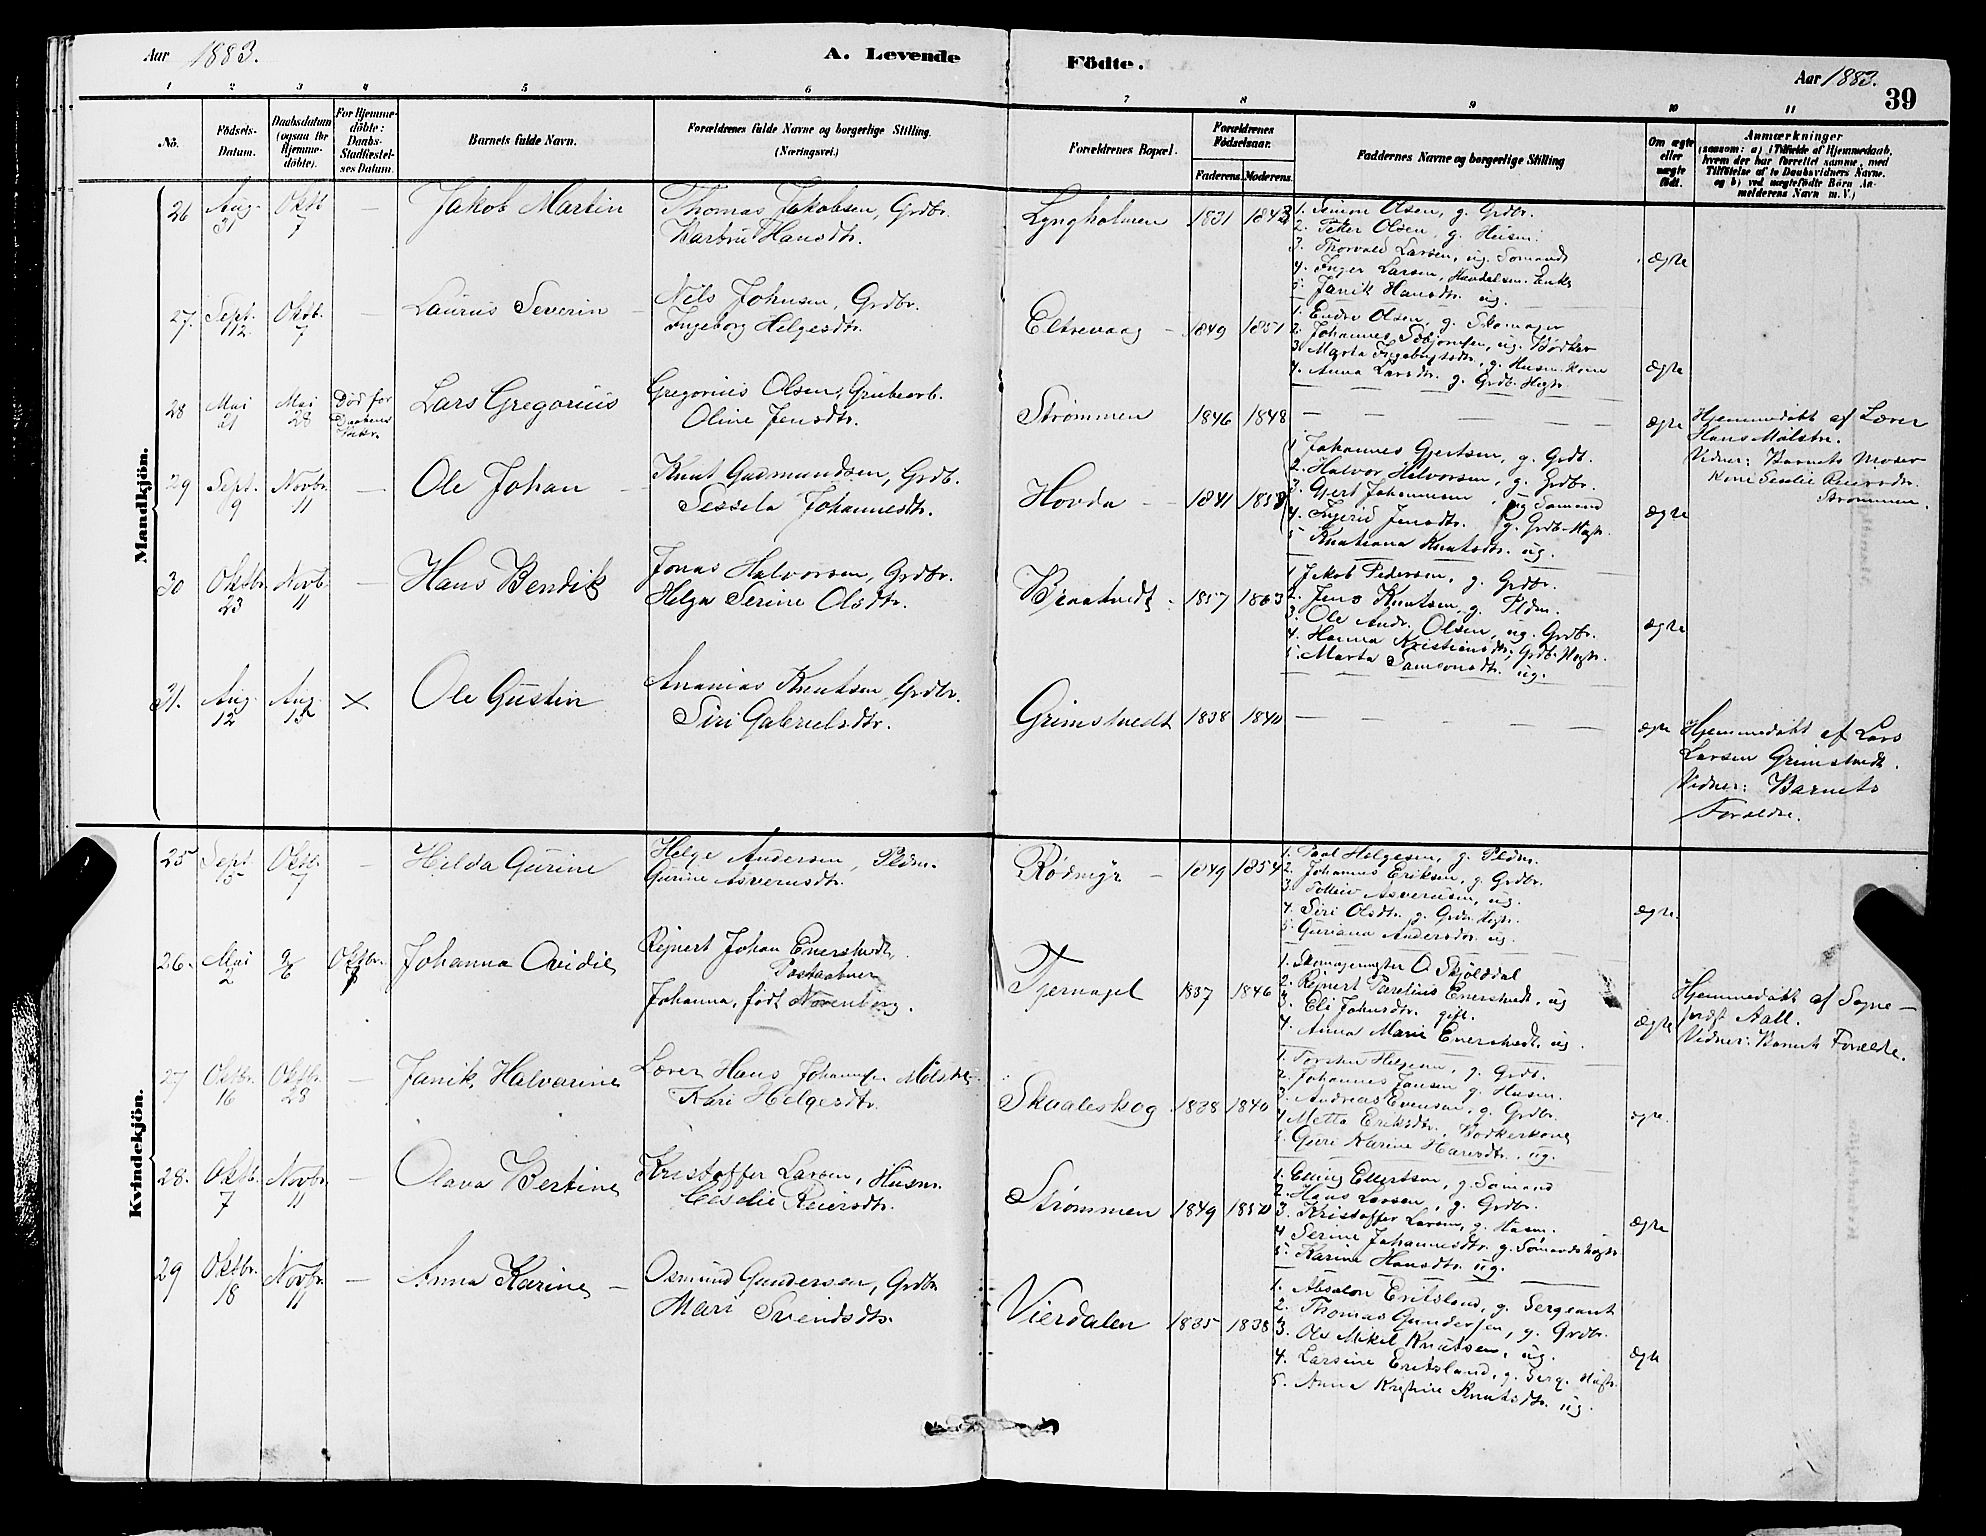 Aar 1883.
A. Levende Födte.
Aar 1883.
39
1 2 3 4 5 6 7 8 9 10 11
No.
Födsels-Datum.
Daabsdatum (ogsaa for Hjemme-döbte).
For Hjemme-döbte: Daabs-Stadfæstel-ses Datum.
Barnets fulde Navn.
Forældrenes fulde Navne og borgerlige Stilling. (Næringsvei.)
Forældrenes Bopæl.
Forældrenes Födselsaar.
Faderens. Moderens.
Faddernes Navne og borgerlige Stilling
Om ægte eller uægte födt.
Anmærkninger
(saasom: a) i Tilfælde af Hjemmedaab, hvem der har forrettet samme, med Tilföielse af to Daabsvidners Navne. og b) ved uægtefödte Börn An-melderens Navn m. V.)
Mandkjön.
26 Aug. 31 Oktb 7 — Jakob Martin
Thomas Jakobsen, Grdbr.
Barbru Hansdtr.
Lyngholmen 1831 1843
1. Simon Olsen, g. Grdbr.
2. Petter Olsen, g. Husm.
3. Thorvald Larsen, ug. Sømand
4. Inger Larsen, Handelsm. Enke
5. Janik Hansdtr. ug.
ægte
27. Sept. 12 Oktb. 7 — Laurus Severin —
Nils Johnsen, Grdbr.
Ingeborg Helgesdtr.
Eltrevaag — 1849 1851
1. Endre Olsen, g. Skomager
2. Johannes Sæbjørnsen, ug. Bødker
3. Marta Ingebrigtsdtr., g. Husm. kone
4. Anna Larsdtr. g. Grdb. Hustr.
ægte
28 Mai 21 Mai 28 Død før Daabens Bekr. Lars Gregorius
Gregorius Olsen, Grubearb.
Oline Jensdtr.
Strømmen 1846 1848 — — — —
ægte
Hjemmedøbt af Lærer
Hans Mølstre.
Vidner: Barnets Moder
Kone Seslie Reiersdtr.
Strømmen.
29 Sept. 9 Novbr. 11 — Ole Johan —
Knut Gudmundsen, Grdb.
Sessela Johannesdtr.
Hovda — 1841 1858
1. Johannes Gjertsen, g. Grdb.
2. Halvor Halvorsen, g. Grdbr.
3. Gjert Johannesen, ug Sømand
4. Ingerid Jensdtr. g. Grdb. Hustr.
5 Knutiana Knutsdtr. ug.
ægte
30 Oktbr. 23 Novb. 11 — Hans Bendik
Jonas Halvorsen, Grdbr.
Helga Serine Olsdtr.
1857 1863
1. Jakob Pedersen, g. Grdbr.
2. Jens Knutsen, g. Pldm.
3. Ole Andr. Olsen, ug. Grdbr.
4. Hanna Kristiansdtr., Grdb. Hustr.
5. Marta Samsonsdtr. ug.
ægte
31. Aug. 12 Aug. 15 × Ole Gustin
Ananias Knutsen, Grdbr.
Siri Gabrielsdtr.
Grimstvedt 1838 1840 — — — —
ægte
Hjemmedøbt af Lars
Larsen Grimstvedt.
Vidner: Barnets
Forældre.
Kvindekjön.
25 Sept. 15 Oktbr. 7 — Hilda Gurine
Helge Andersen, Pldm.
Gurine Asveruzdtr.
Rødmyr — 1849 1854
1. Paul Helgesen, g. Pldm.
2. Johannes Eriksen, g. Grdbr.
3. Tolleiv Asverusen, ug.
4. Siri Olsdtr. g. Grdbr. Hustr.
5. Guriana Andersdtr. ug.
ægte.
26. Mai 2 Oktbr. 7 Johanna Ovidie
Rejnert Johan Enerstvedt,
Postaabner
Johanna, født Norenberg.
Tjernagel 1837 1846
1. Skomagermster O Skjölddal
2. Rejnert Parelius Enerstvedt, ug
3. Eli Johnsdtr. gift.
4. Anna Marie Enerstvedt, ug.
ægte
Hjemmedøbt af Sogne-
præst Aall.
Vidner: Barnets Forældre.
27 Oktbr. 16 Oktbr. 28 — Janik Halvarine
Lærer Hans Johannesen Mølstre
Kari Helgesdtr.
Skaaleskog 1838 1840
1. Torsten Helgesen, g. Grdb.
2. Johannes Jansen g. Husm.
3. Andreas Evensen, g. Grdbr.
4. Metta Eriksdtr., Bødkerkone
5. Guri Karine Hansdtr., ug.
ægte.
28. Oktb. 7 Novbr. 11 — Olava Bertine
Kristoffer Larsen, Husm.
Ceselie Reiersdtr.
Strømmen 1849 1850
1. Elling Ellertsen, g. Sømand
2. Hans Larsen, g. Grdbr.
3. Kristoffer Larsen, g. Husm.
4 Serine Johannesdtr. g. Sømandshustr
5. Karine Hansdtr. ug.
ægte
29 Oktbr. 18 Novbr. 11 — Anna Karine —
Osmund Gundersen, Grdbr
Mari Svendsdtr.
Vierdalen 1835 1838
1. Absalon Eritsland, g. Sergeant
2. Thomas Gundersen, g. Grdbr.
3. Ole Mikal Knutsen, ug.
4. Larsine Eritsland, g. Serg. Hustr.
5. Anna Kristine Knutsdtr. ug.
ægte